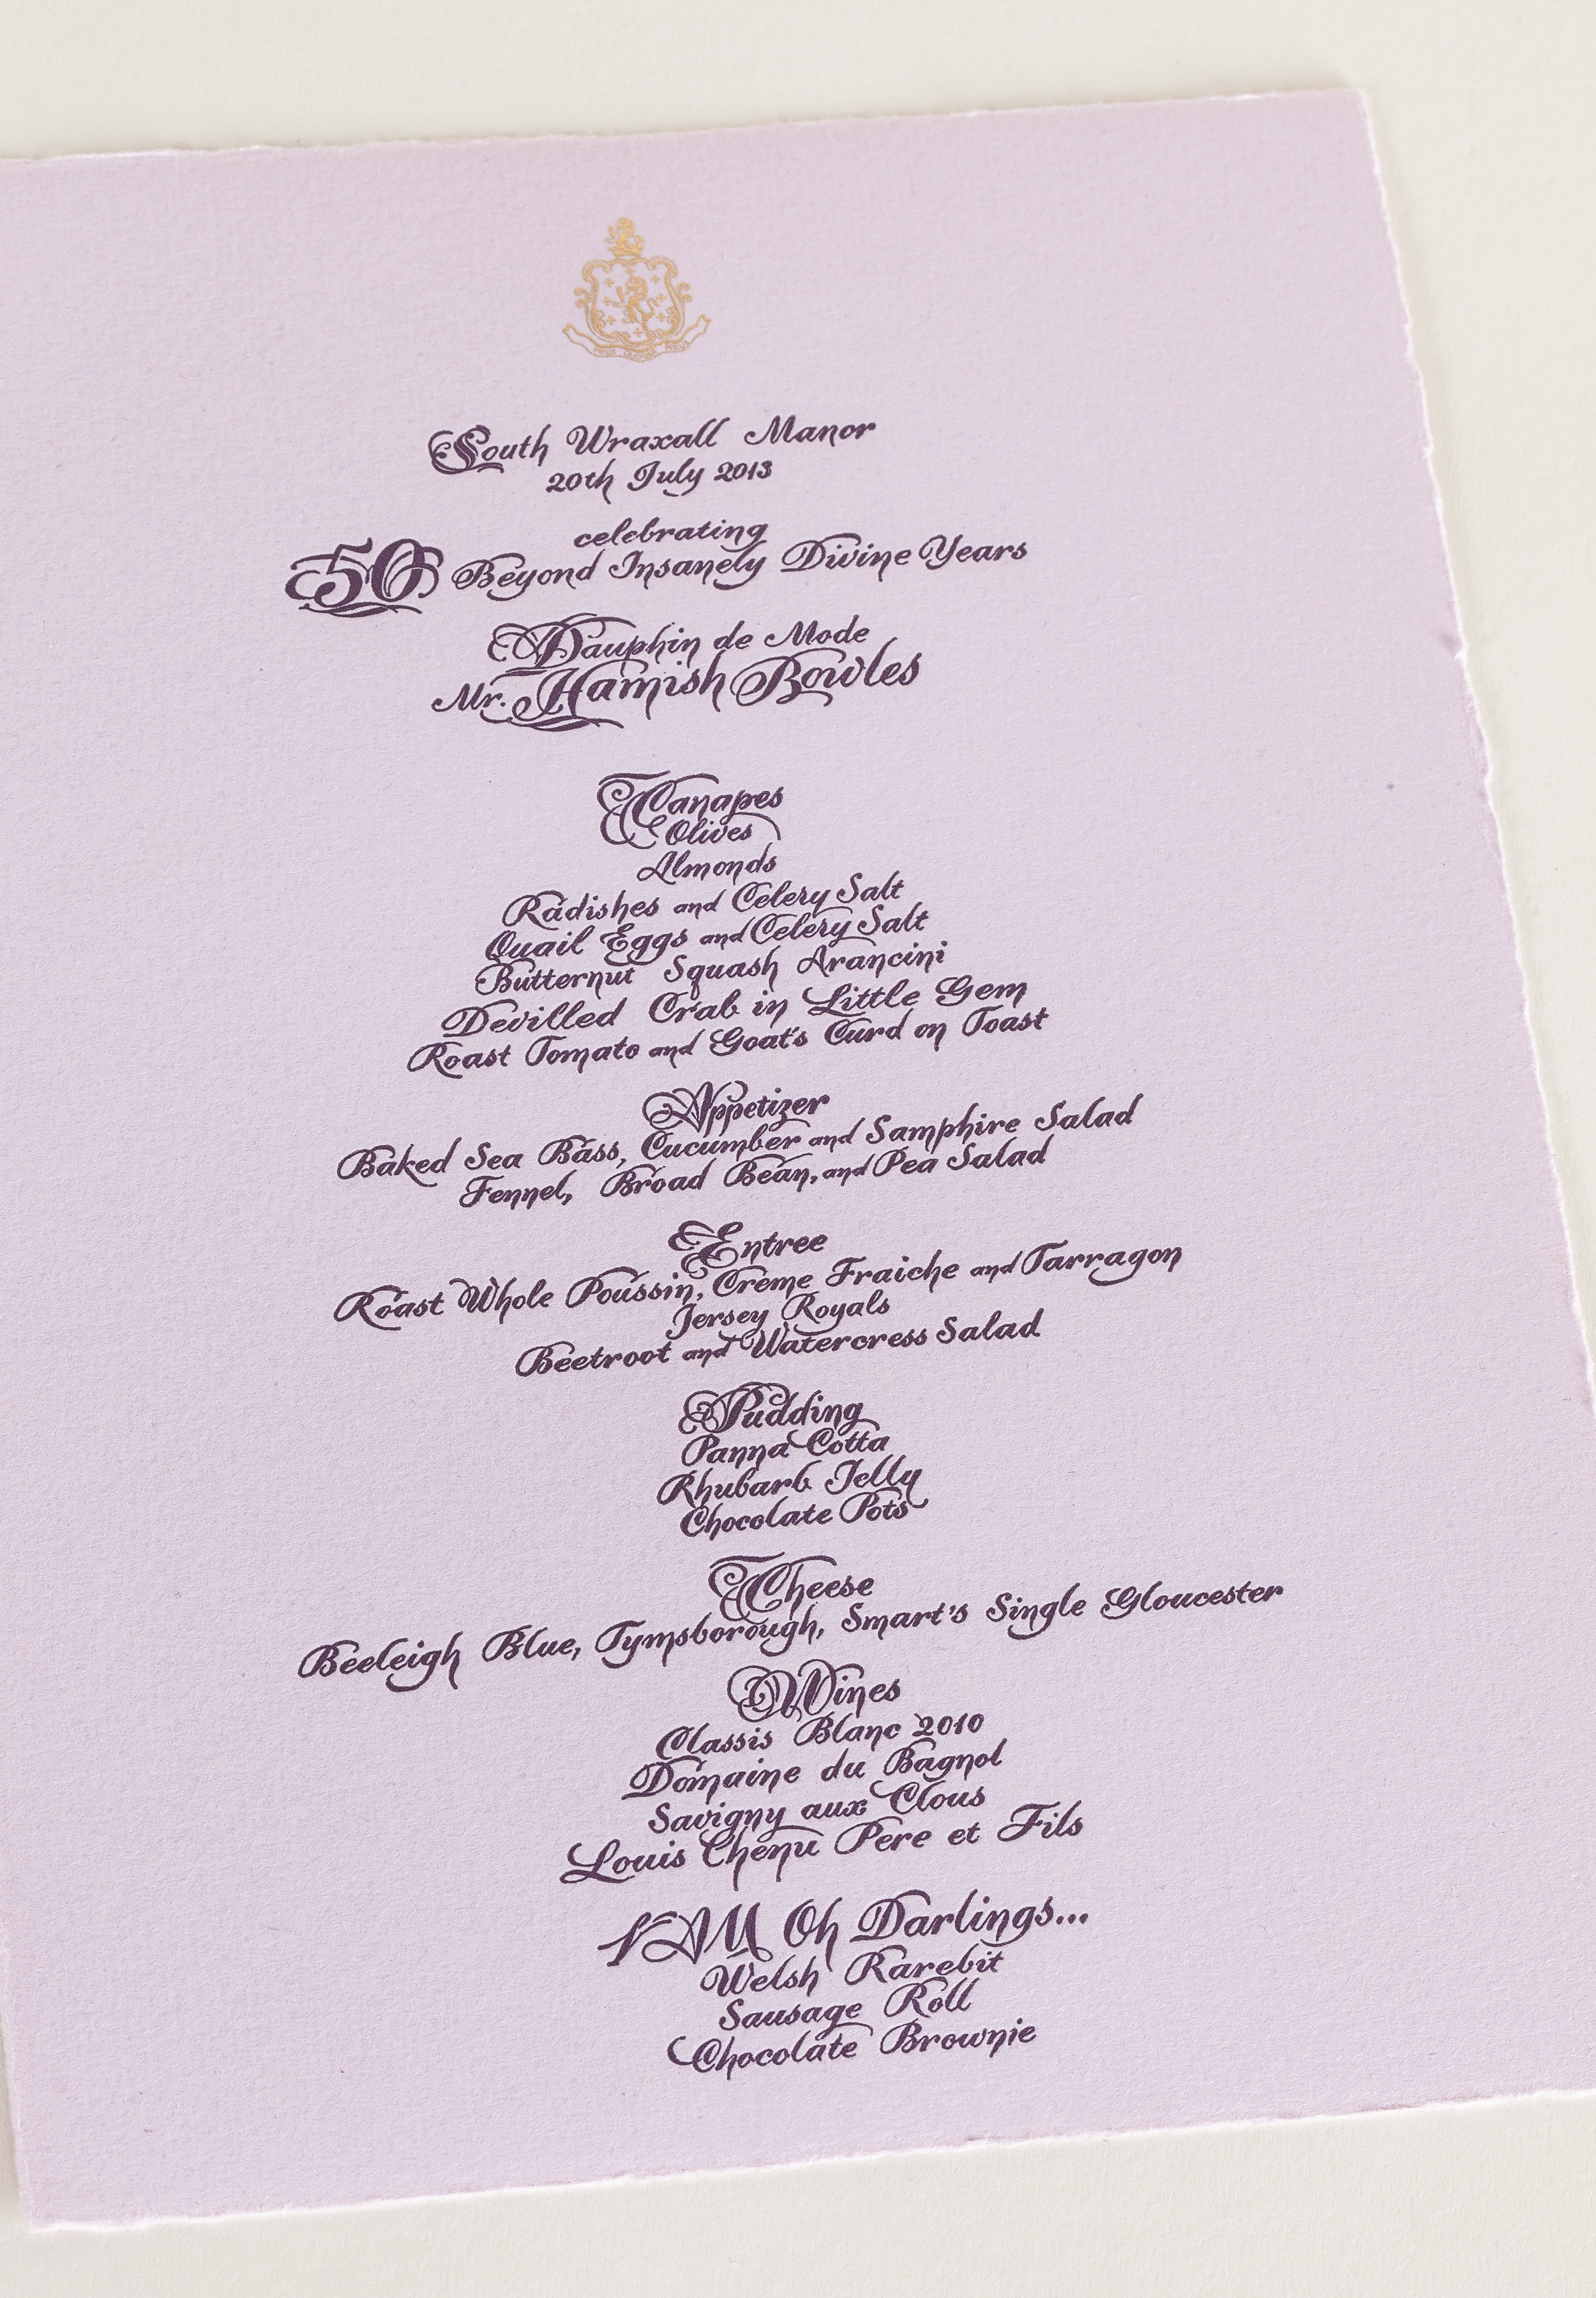 South Wraxall Manor
20th July 2013
celebrating
50 Beyond Insanely Divine Years
Dauphin de Mode
Mr. Hamish Bowles
Canapes
Olives
Almonds
Radishes and Celery Salt
Quail Eggs and Celery Salt
Butternut Squash Arancini
Devilled Crab in Little Gem
Roast Tomato and Goat's Curd on Toast
Appetizer
Baked Sea Bass, Cucumber and Samphire Salad
Fennel, Broad Bean, and Pea Salad
Entree
Roast Whole Poussin, Creme Fraiche and Tarragon
Jersey Royals
Beetroot and Watercress Salad
Pudding
Panna Cotta
Rhubarb Jelly
Chocolate Pots
Cheese
Beeleigh Blue, Tymsborough, Smart's Single Gloucester
Wines
Classis Blanc 2010
Domaine du Bagnol
Savigny aux Clous
Louis Chenu Pere et Fils
1AM Oh Darlings...
Welsh Rarebit
Sausage Roll
Chocolate Brownie